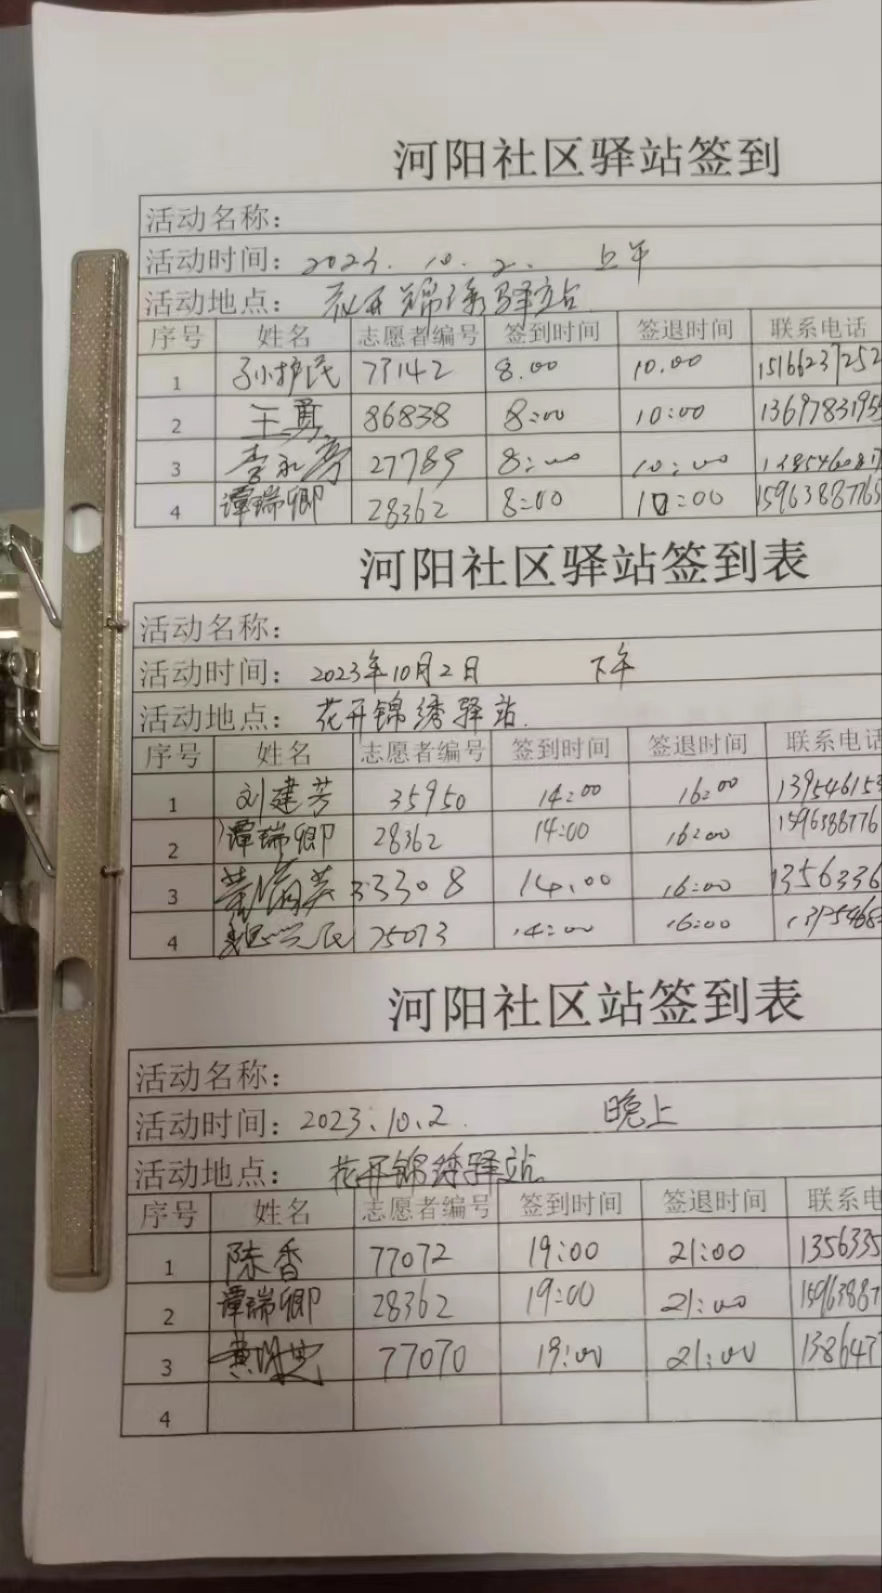 河阳社区驿站签到
活动名称：
活动时间：2023.10.2. 上午
活动地点：花开锦绣驿站
序号 姓名 志愿者编号 签到时间 签退时间 联系电话
1 孙护民 77142 8.00 10.00 15166237252
2 王勇 86838 8:00 10:00 1369783195
3 27789 8:00 10:00
4 谭瑞卿 28362 8:00 10:00 15963887765
河阳社区驿站签到表
活动名称：
活动时间：2023年10月2日 下午
活动地点：花开锦绣驿站.
序号 姓名 志愿者编号 签到时间 签退时间 联系电话
1 刘建芳 35950 14:00 16:00 139546153
2 谭瑞卿 28362 14:00 16:00 1596388776
3 33308 14.00 16:00 1356336
4 75073 14:00 16:00 1395468
河阳社区站签到表
活动名称：
活动时间：2023.10.2. 晚上
活动地点：花开锦绣驿站
序号 姓名 志愿者编号 签到时间 签退时间 联系电
1 陈香 77072 19:00 21:00 1356335
2 谭瑞卿 28362 19:00 21:00 15963887
3 77070 19:00 21:00 1386477
4